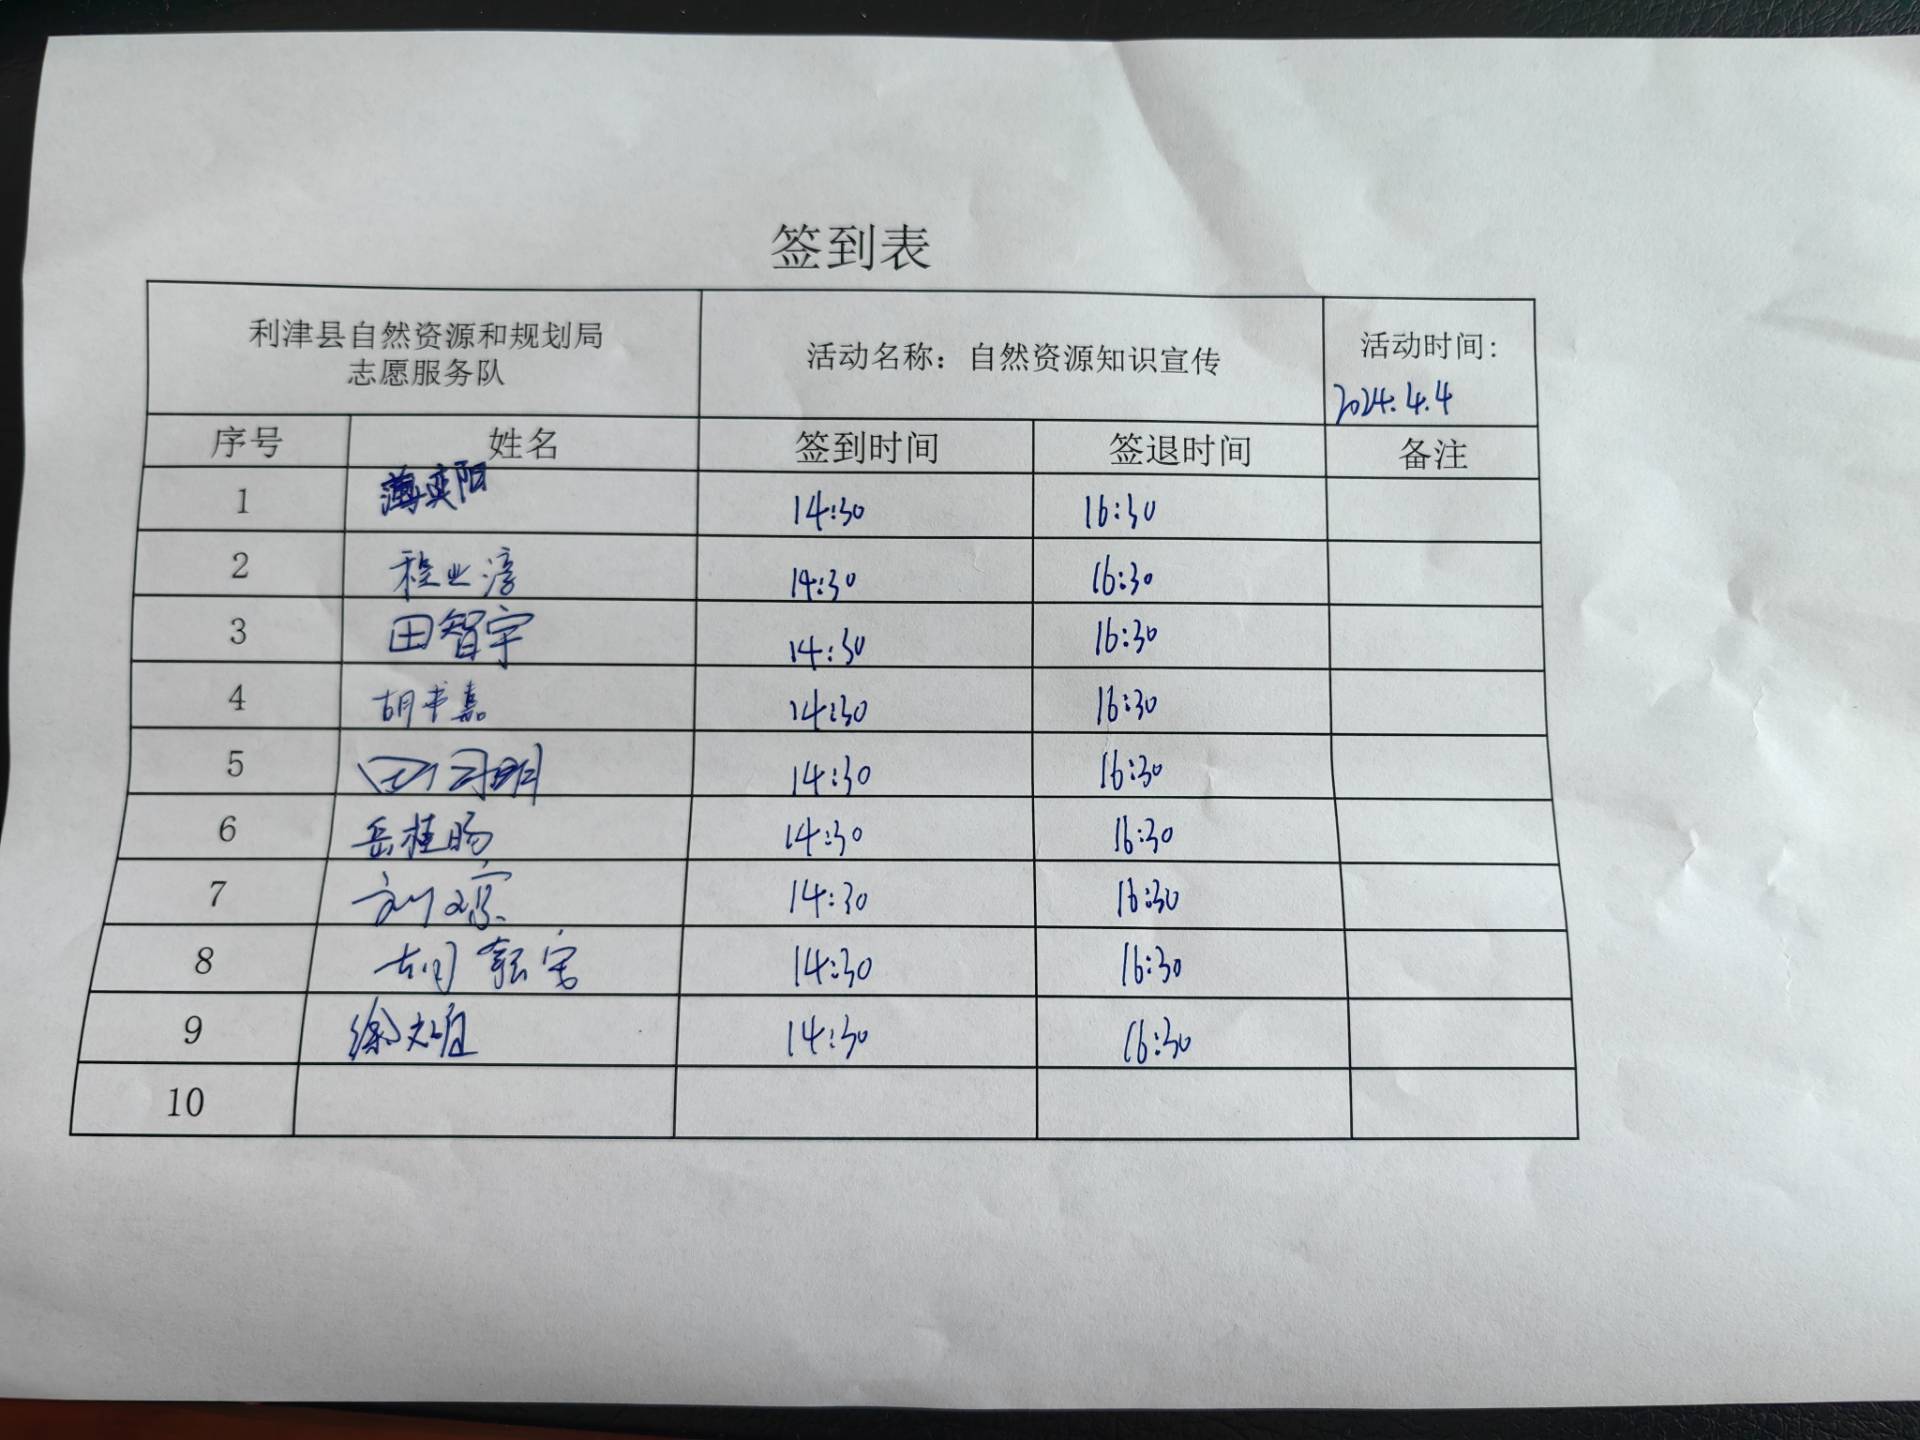 签到表
利津县自然资源和规划局
志愿服务队
活动名称：自然资源知识宣传
活动时间：
2024.4.4
序号 姓名 签到时间 签退时间 备注
1 奕阳 14:30 16:30
2 程业淳 14:30 16:30
3 田智宇 14:30 16:30
4 胡书嘉 14:30 16:30
5 明 14:30 16:30
6 岳桂旸 14:30 16:30
7 刘 14:30 16:30
8 胡 14:30 16:30
9 徐 14:30 16:30
10